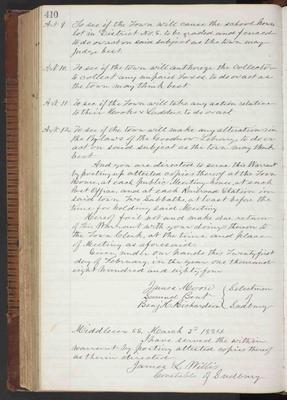 410
Art 9 To see if the Town will cause the school house
lot in District No. 5. to be graded and fenced
to do or act on said subject as the town may
judge best.
Art 10. To see if the town will authorize the Collector
to collect any unpaid Taxes, to do or act as
the town may think best
Art 11. To see if the Town will take any action relative
to their Hook & Ladder to do or act
Art 12. To see if the Town will make any alteration in
the Bylaws of the Goodnow Library, to do or
act on said subject as the town may think
best
And you are directed to serve this Warrant
by posting up attested copies thereof at the Town
House, at each Public Meeting house, at each
Post Office, and at each Railroad Station in
said town two Sabbaths, at least before the
time for holding said Meeting
Hereof fail not and make due return
of this Warrant with your doings thereon to
the Town Clerk, at the time and place
of Meeting as aforesaid
Given under our hands this Twenty first
day of February, in the year one thousand
eight hundred and eighty four
James Moore } Selectmen
Samuel Bent } of
Benj. H. Richardson } Sudbury
Middlesex SS. March 3d 1884
I have served the within
warrant by posting attested copies thereof
as therein directed
James L. Willis
Constable of Sudbury